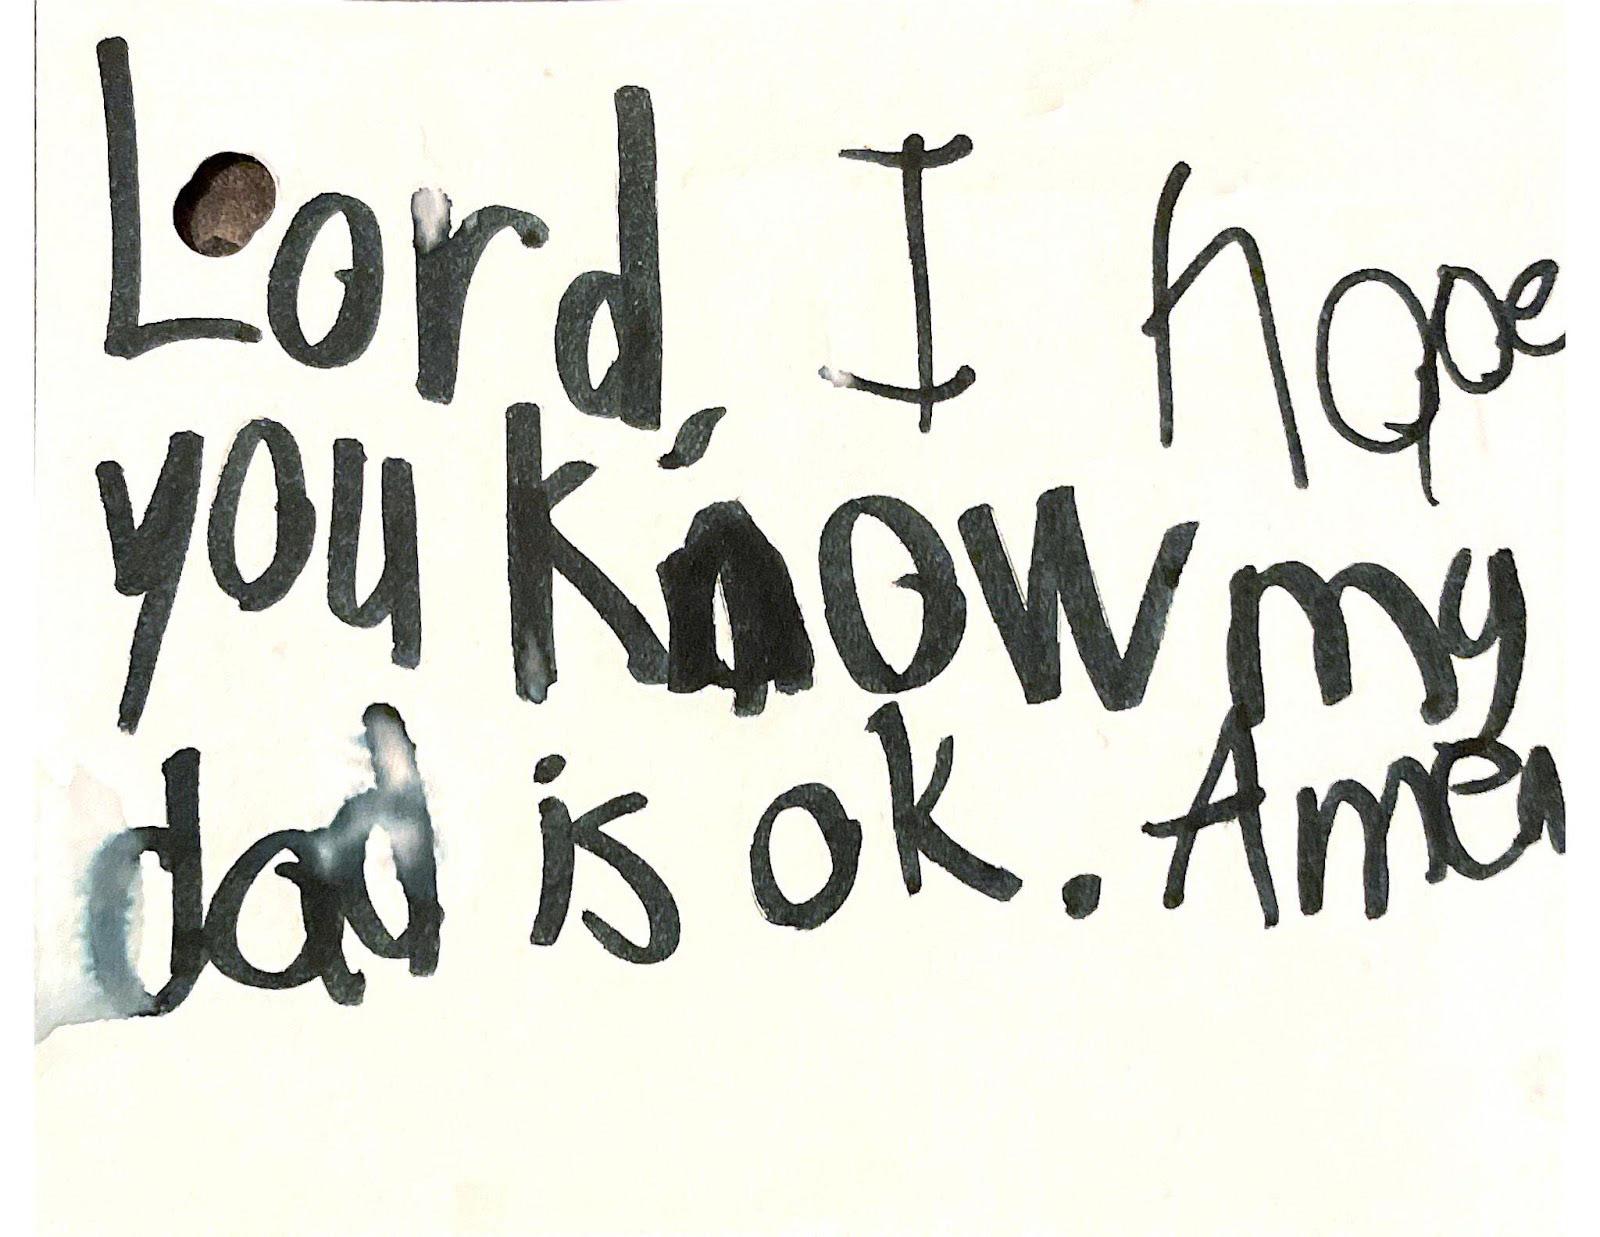 Lord, I hope
you know my
dad is ok. Amen